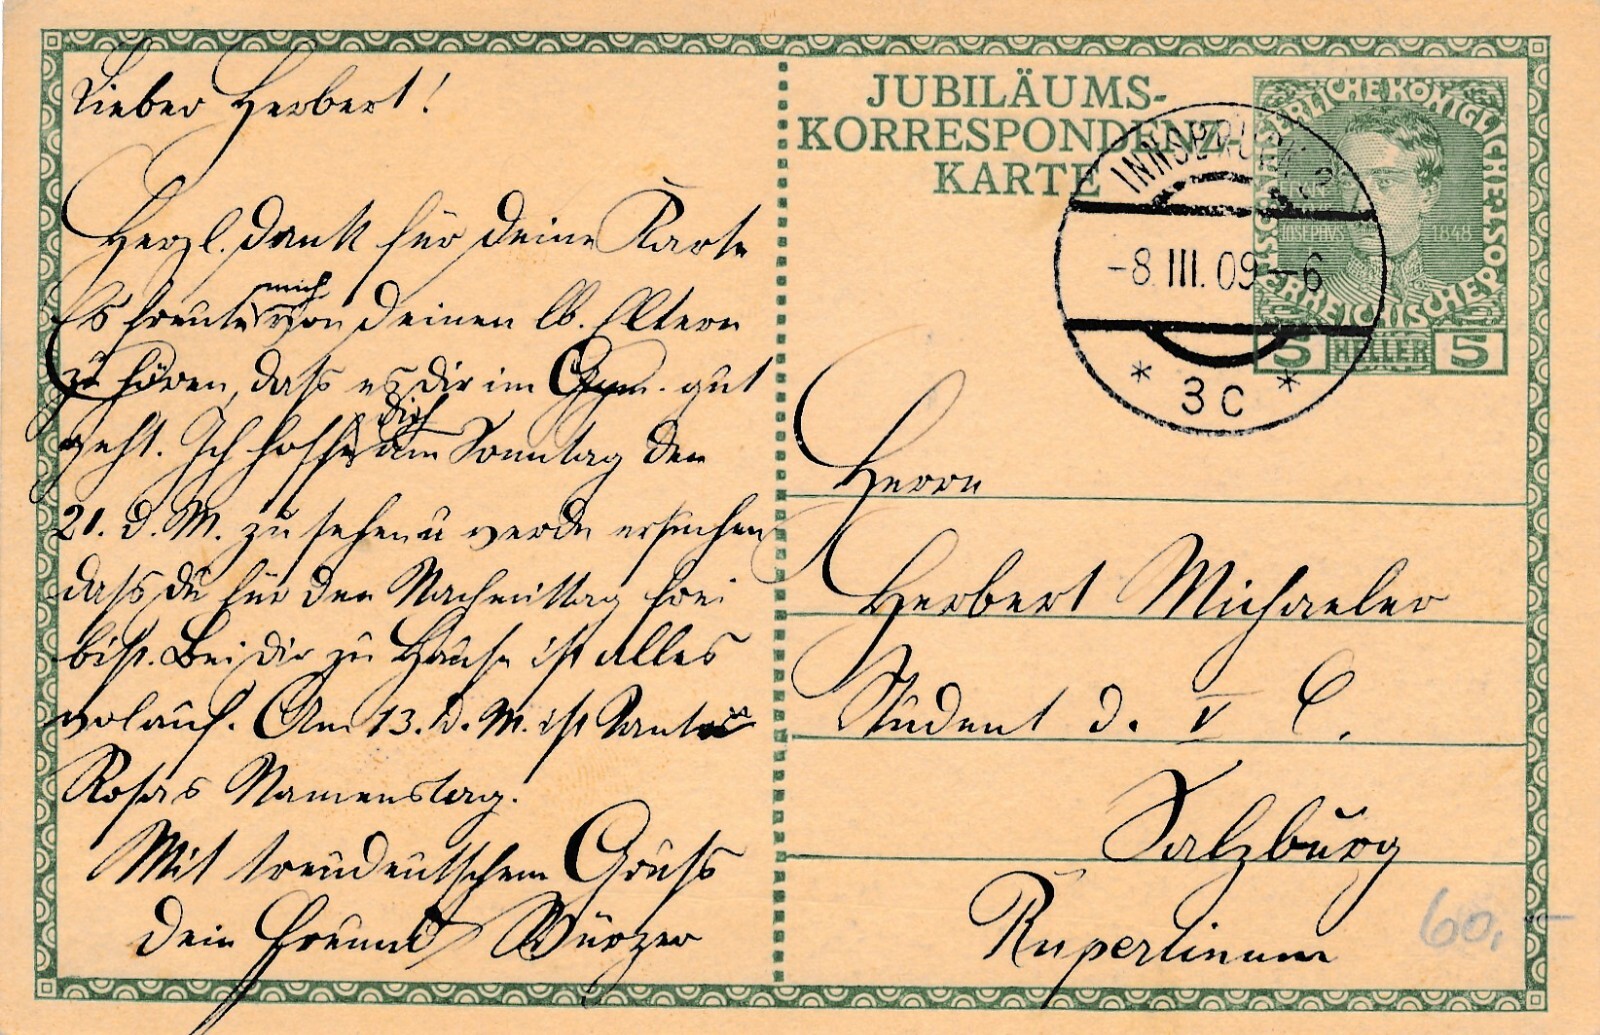 Lieber Herbert!
Herzl. Dank für Deine Karte
Es freute mich von Deinen lb. Eltern
zu hören, dass es Dir im Gym. gut
geht. Ich hoffe Dich am Sonntag den
21. d. M. zu sehen u werde ersuchen
dass Du für den Nachmittag frei
bist. Bei Dir zu Hause ist alles
wolauf. Am 13. d. M. ist Tante
Rosas Namenstag.
Mit treudeutschem Gruss
Dein Freund Würzer
JUBILÄUMS-
KORRESPONDENZ-
KARTE
KAISERLICHE KÖNIGLICHE ÖSTERREICHISCHE POST
1848
5 HELLER 5
INNSBRUCK 2
-8. III. 09 -6
* 3c *
Herrn
Herbert Michaeler
Student d. V C.
Salzburg
Rupertinum
60,-